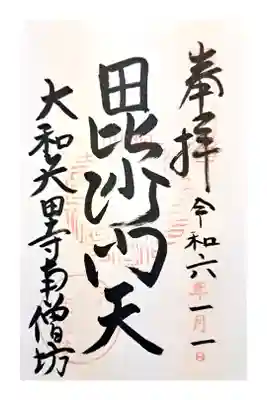 奉拝
令和六年一月一日
毘沙門天
大和矢田寺南僧坊